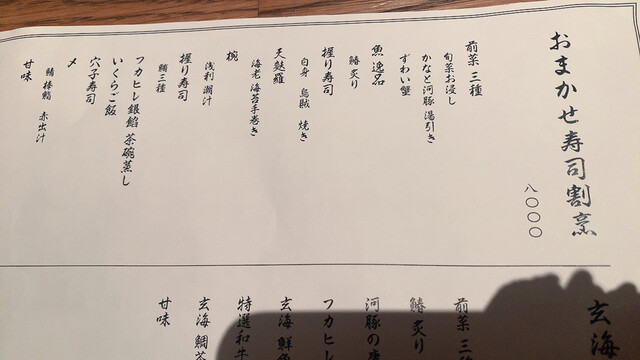 おまかせ寿司割烹
八〇〇〇
前菜 三種
旬菜お浸し
かなと河豚 湯引き
ずわい蟹
魚逸品
鰆 炙り
握り寿司
白身 烏賊 焼き
天麩羅
海老 海苔手巻き
椀
浅利 潮汁
握り寿司
鮪三種
フカヒレ銀餡 茶碗蒸し
いくらご飯
穴子寿司
〆
鯖棒鮨 赤出汁
甘味
玄海
前菜 三種
鰆 炙り
河豚の唐
フカヒレ
玄海 鮮魚
特選和牛
玄海 鯛茶
甘味